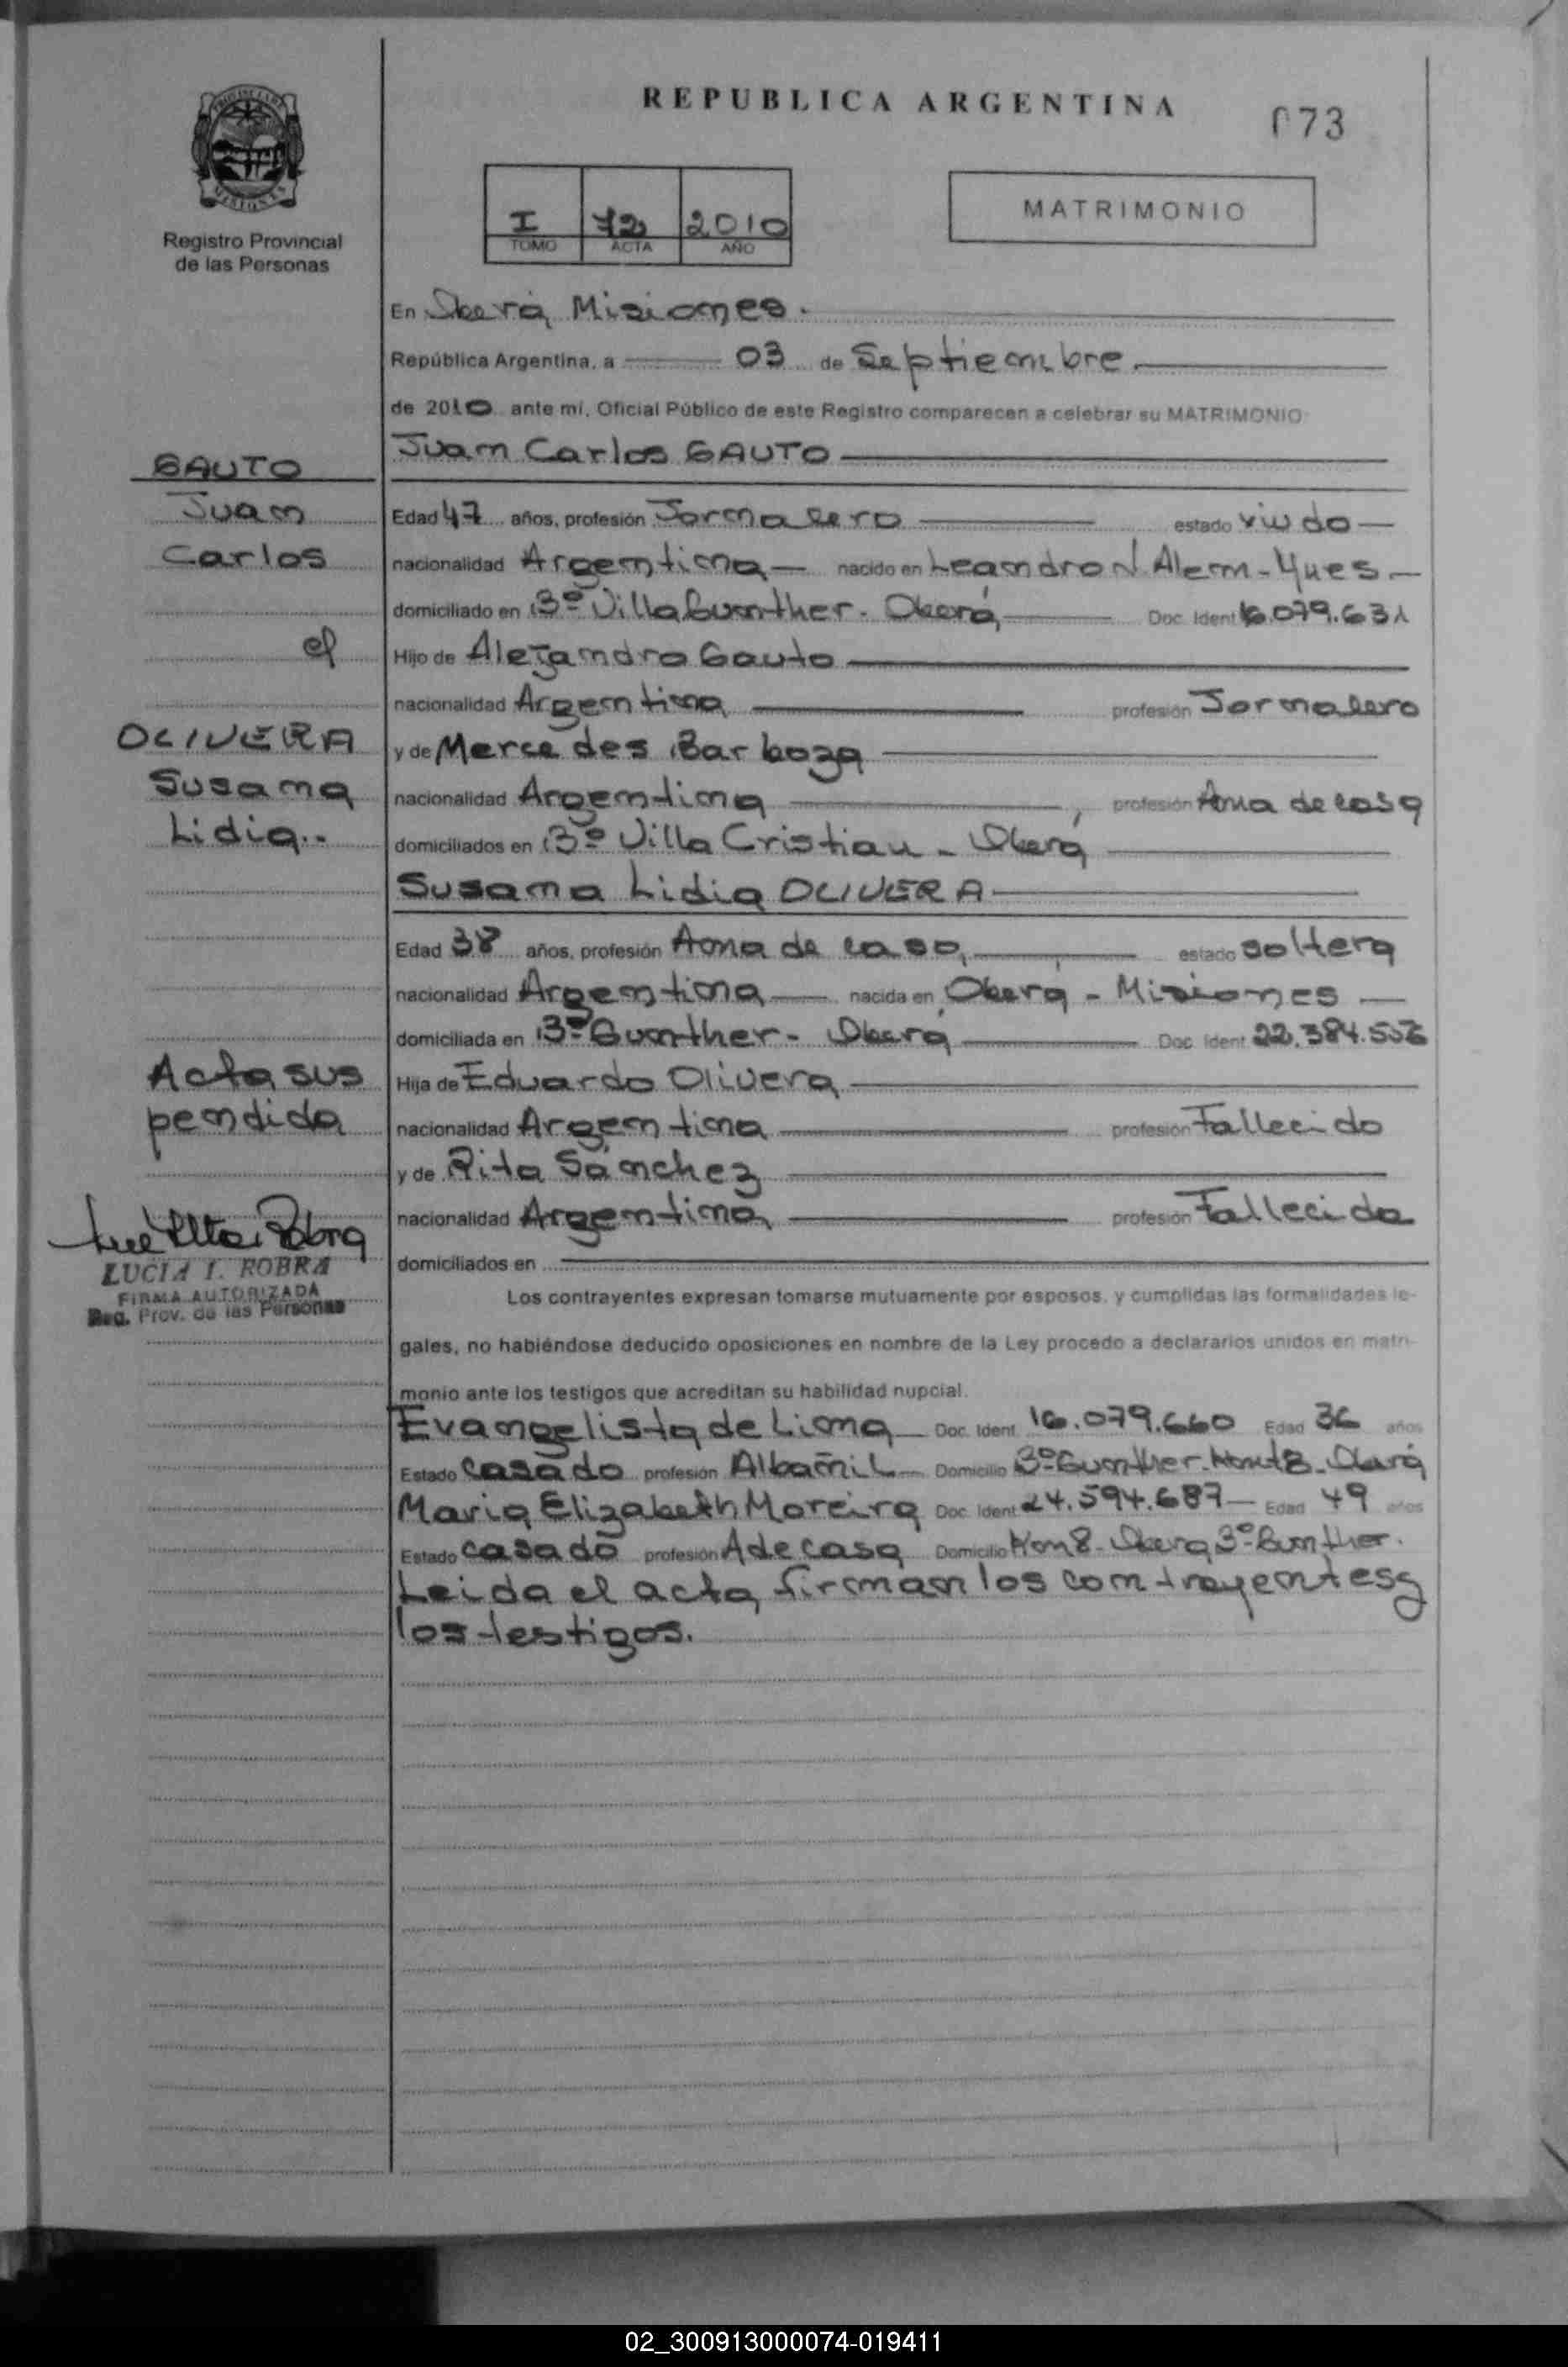 REPUBLICA ARGENTINA
073
Registro Provincial
de las Personas
I 72 2010
TOMO ACTA AÑO
MATRIMONIO
En Oberá, Misiones.
República Argentina, a 03 de Septiembre
de 2010 ante mí, Oficial Público de este Registro comparecen a celebrar su MATRIMONIO
Juan Carlos GAUTO
GAUTO
Juan
Carlos
c/
OLIVERA
Susana
Lidia..
Edad 47 años, profesión Jornalero estado viudo
nacionalidad Argentina nacido en Leandro N Alem - Mnes
domiciliado en Bº Villa Gunther - Oberá Doc. Ident 16.079.631
Hijo de Alejandro Gauto
nacionalidad Argentina profesión Jornalero
y de Mercedes Barboza
nacionalidad Argentina, profesión Ama de casa
domiciliados en Bº Villa Cristian - Oberá
Susana Lidia OLIVERA
Edad 38 años, profesión Ama de casa, estado soltera
nacionalidad Argentina nacida en Oberá - Misiones
domiciliada en Bº Gunther - Oberá Doc. Ident 22.384.506
Hija de Eduardo Olivera
nacionalidad Argentina profesión Fallecido
y de Rita Sánchez
nacionalidad Argentina profesión Fallecida
domiciliados en
Acta sus
pendida
LUCIA I. ROBRA
FIRMA AUTORIZADA
Reg. Prov. de las Personas
Los contrayentes expresan tomarse mutuamente por esposos, y cumplidas las formalidades le-
gales, no habiéndose deducido oposiciones en nombre de la Ley procedo a declararlos unidos en matri-
monio ante los testigos que acreditan su habilidad nupcial.
Evangelista de Lima Doc. Ident. 16.079.660 Edad 36 años
Estado Casado profesión Albañil Domicilio Bº Gunther - Km 8 - Oberá
Maria Elizabeth Moreira Doc. Ident 24.594.687 Edad 49 años
Estado casado profesión A de casa Domicilio Km 8 - Oberá Bº Gunther.
Leida el acta, firman los contrayentes y
los testigos.
02_300913000074-019411